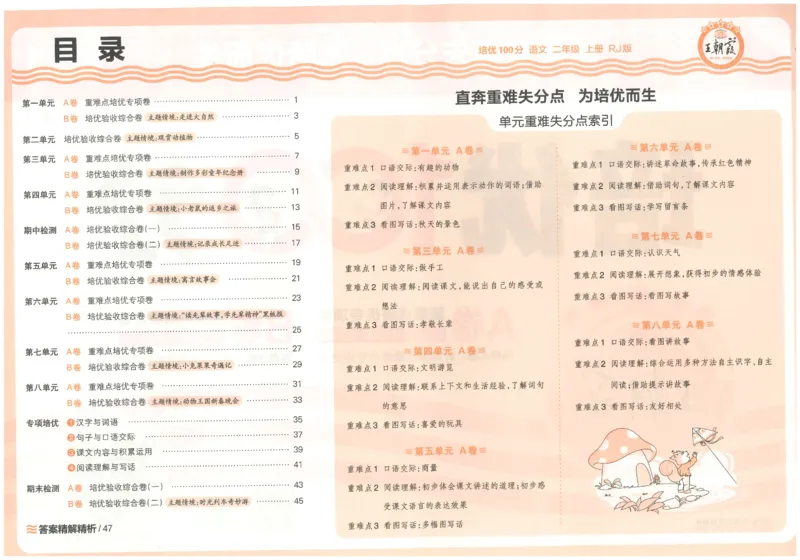 目 录
培优100分 语文 二年级 上册 RJ版
王朝霞
第一单元 A卷 重难点培优专项卷 1
B卷 培优验收综合卷 主题情境:走进大自然 3
第二单元 培优验收综合卷 主题情境:观赏动植物 5
第三单元 A卷 重难点培优专项卷 7
B卷 培优验收综合卷 主题情境:制作多彩童年纪念册 9
第四单元 A卷 重难点培优专项卷 11
B卷 培优验收综合卷 主题情境:小老鼠的返乡之旅 13
期中检测 A卷 培优验收综合卷(一) 15
B卷 培优验收综合卷(二) 主题情境:记录成长足迹 17
第五单元 A卷 重难点培优专项卷 19
B卷 培优验收综合卷 主题情境:寓言故事会 21
第六单元 A卷 重难点培优专项卷 23
B卷 培优验收综合卷 主题情境:“诵先辈故事,学先辈精神”黑板报
25
第七单元 A卷 重难点培优专项卷 27
B卷 培优验收综合卷 主题情境:小克莱果奇遇记 29
第八单元 A卷 重难点培优专项卷 31
B卷 培优验收综合卷 主题情境:动物王国新春晚会 33
专项培优 1 汉字与词语 35
2 句子与口语交际 37
3 课文内容与积累运用 39
4 阅读理解与写话 41
期末检测 A卷 培优验收综合卷(一) 43
B卷 培优验收综合卷(二) 主题情境:时光列车奇妙游 45
答案精解精析/47
直奔重难失分点 为培优而生
单元重难失分点索引
第一单元 A卷
重难点1 口语交际:有趣的动物
重难点2 阅读理解:积累并运用表示动作的词语;借助
图片,了解课文内容
重难点3 看图写话:秋天的景色
第三单元 A卷
重难点1 口语交际:做手工
重难点2 阅读理解:阅读课文,能说出自己的感受或
想法
重难点3 看图写话:孝敬长辈
第四单元 A卷
重难点1 口语交际:文明游览
重难点2 阅读理解:联系上下文和生活经验,了解词句
的意思
重难点3 看图写话:喜爱的玩具
第五单元 A卷
重难点1 口语交际:商量
重难点2 阅读理解:初步体会课文讲述的道理;初步感
受课文语言的表达效果
重难点3 看图写话:多幅图写话
第六单元 A卷
重难点1 口语交际:讲述革命故事,传承红色精神
重难点2 阅读理解:借助词句,了解课文内容
重难点3 看图写话:学写留言条
第七单元 A卷
重难点1 口语交际:认识天气
重难点2 阅读理解:展开想象,获得初步的情感体验
重难点3 看图写话:看图写故事
第八单元 A卷
重难点1 口语交际:看图讲故事
重难点2 阅读理解:综合运用多种方法自主识字,自主
阅读;借助提示讲故事
重难点3 看图写话:友好相处